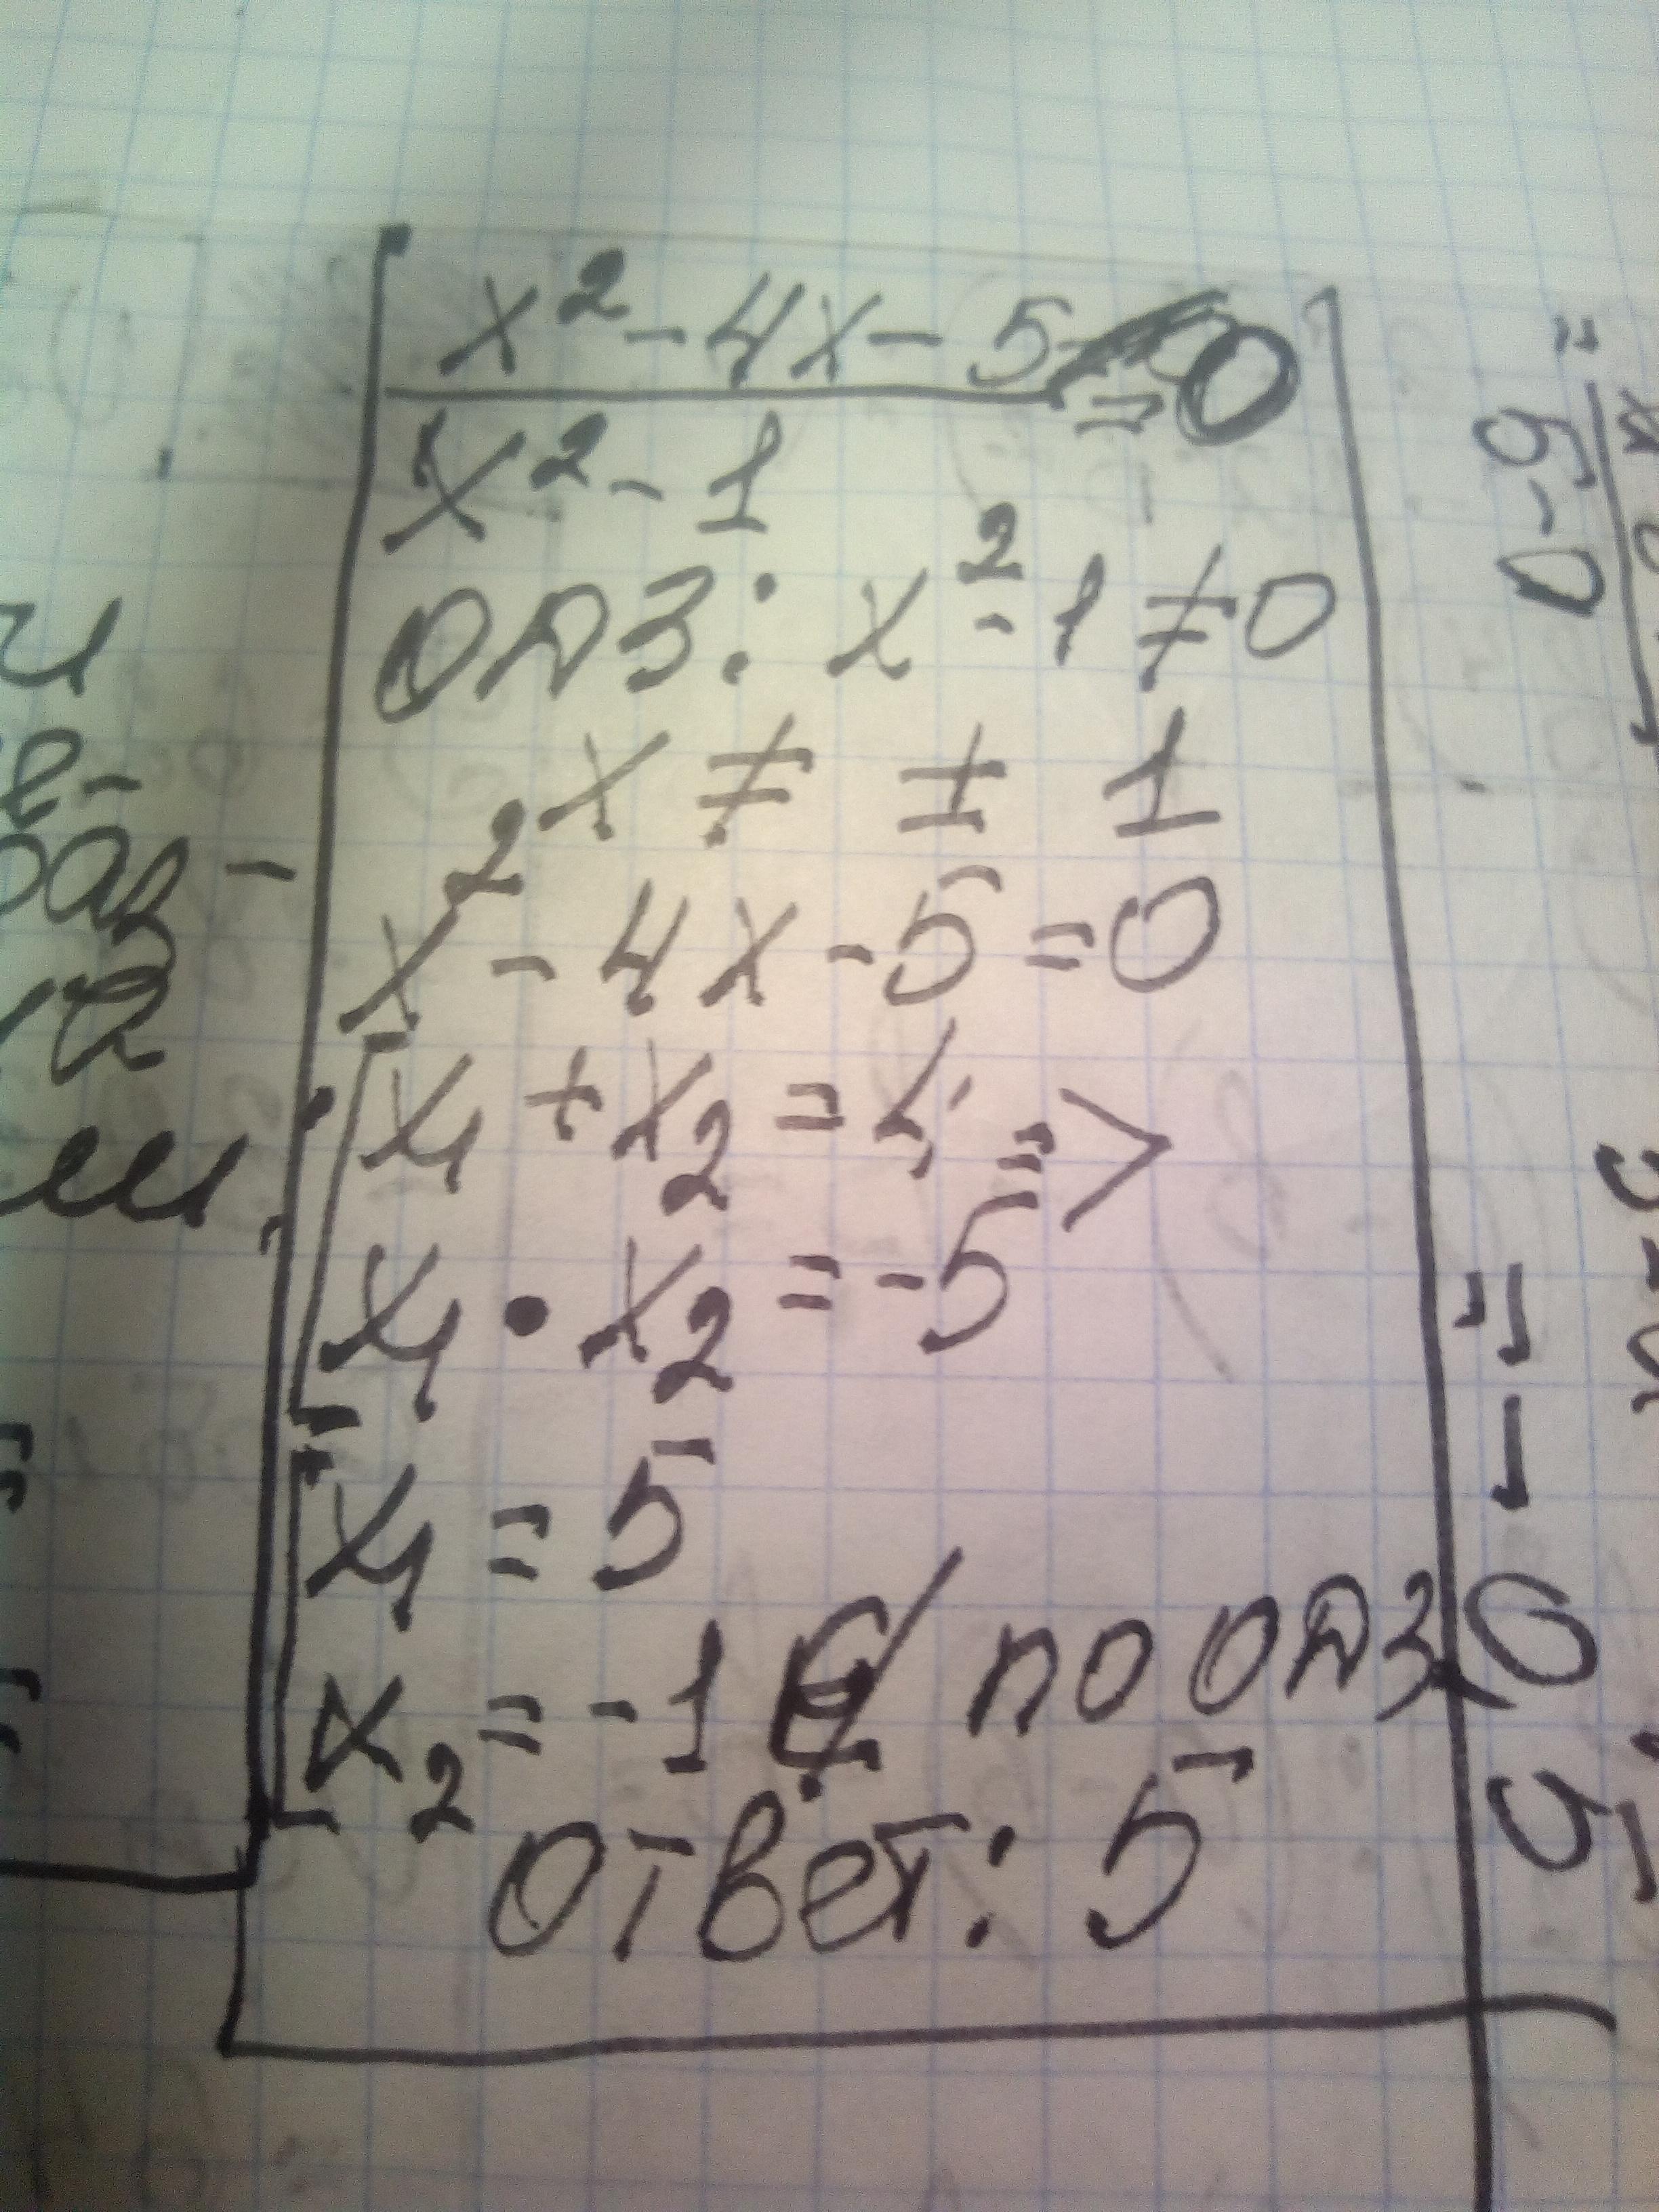 x² - 4x - 5 = 0
x² - 1
ОДЗ: x² - 1 ≠ 0
x ≠ ± 1
x² - 4x - 5 = 0
x₁ + x₂ = 4; =>
x₁ • x₂ = -5
x₁ = 5
x₂ = -1 ∉ по ОДЗ
Ответ: 5